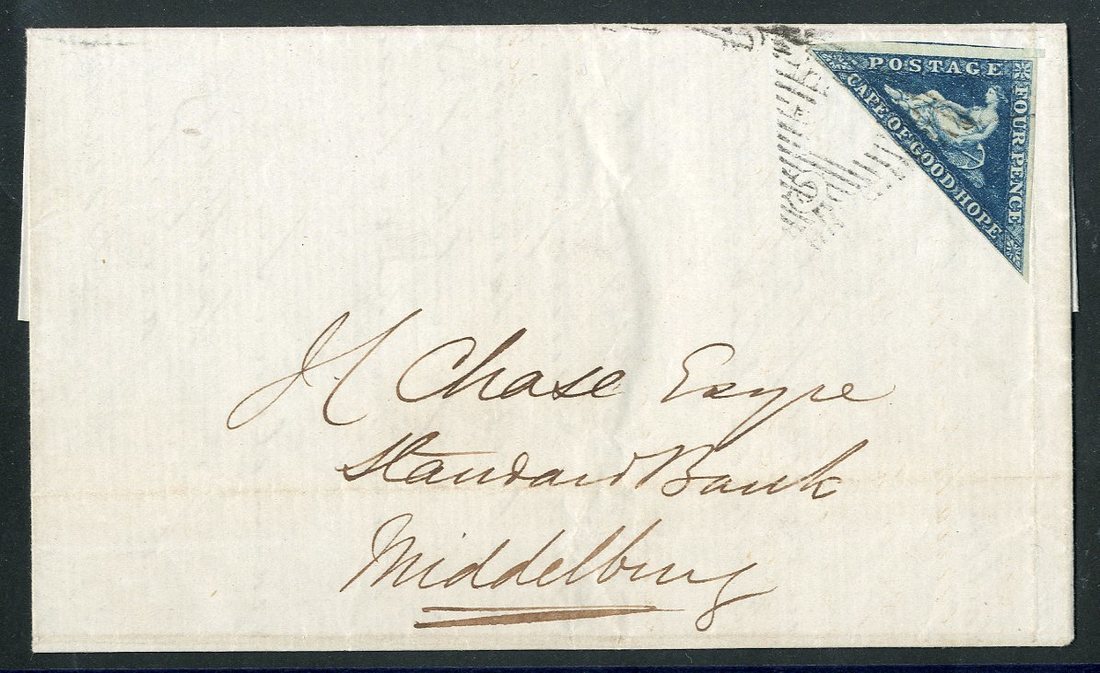 POSTAGE
FOUR PENCE
CAPE OF GOOD HOPE
Chase Esqre
Standard Bank
Middelburg